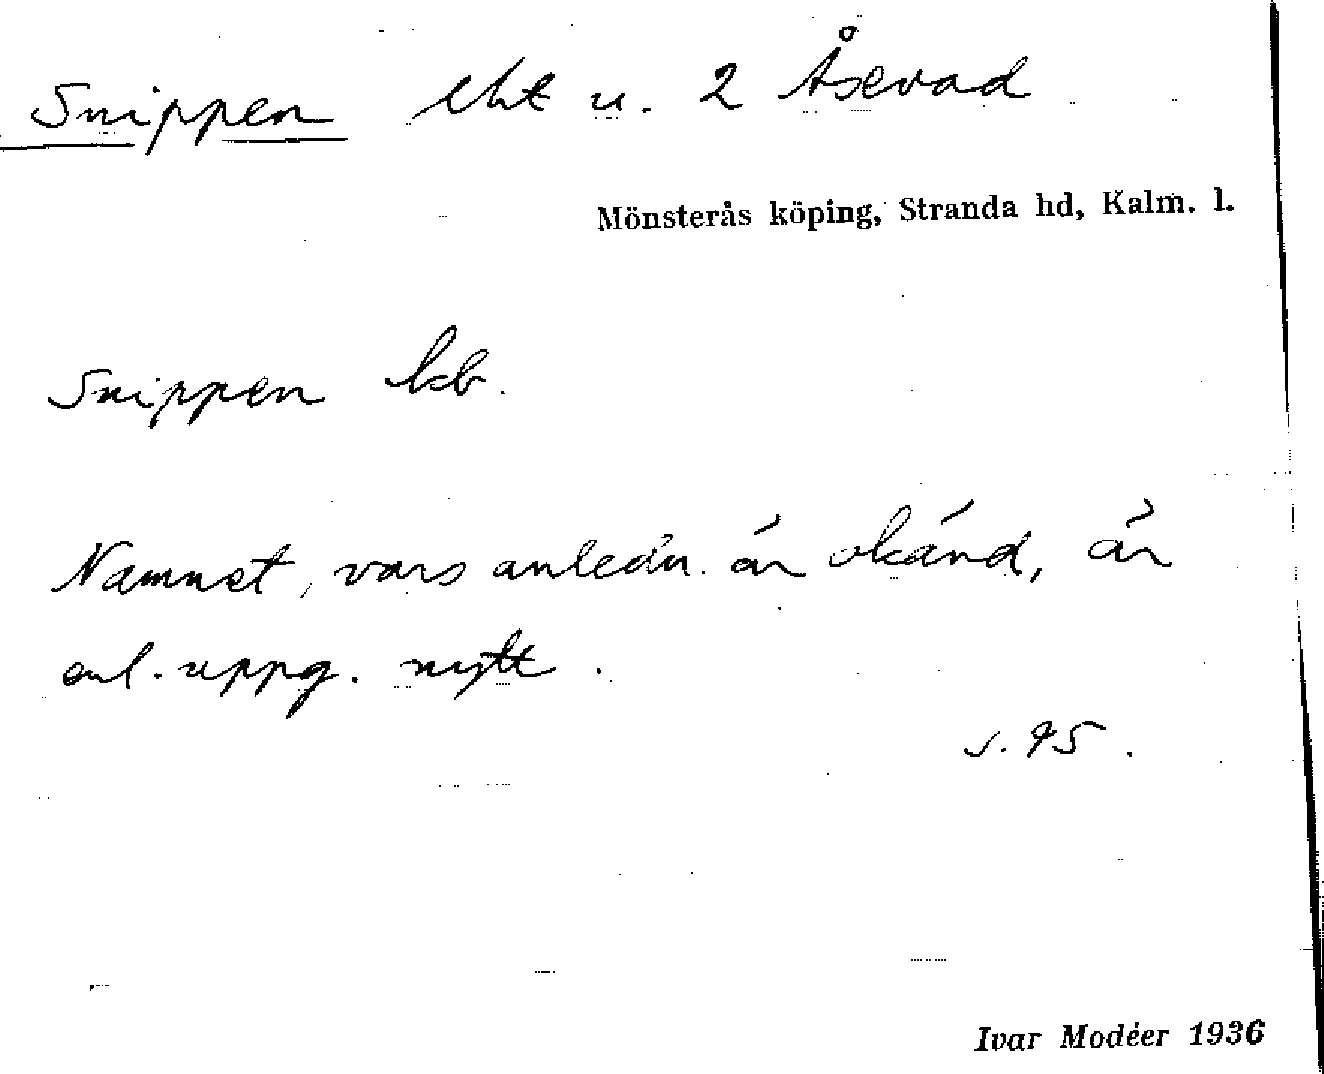 Snippen lht u. 2 Åsevad
Mönsterås köping, Stranda hd, Kalm. l.
Snippen kb.
Namnet, vars anledn. är okänd, är
enl. uppg. nytt.
s. 95.
Ivar Modéer 1936